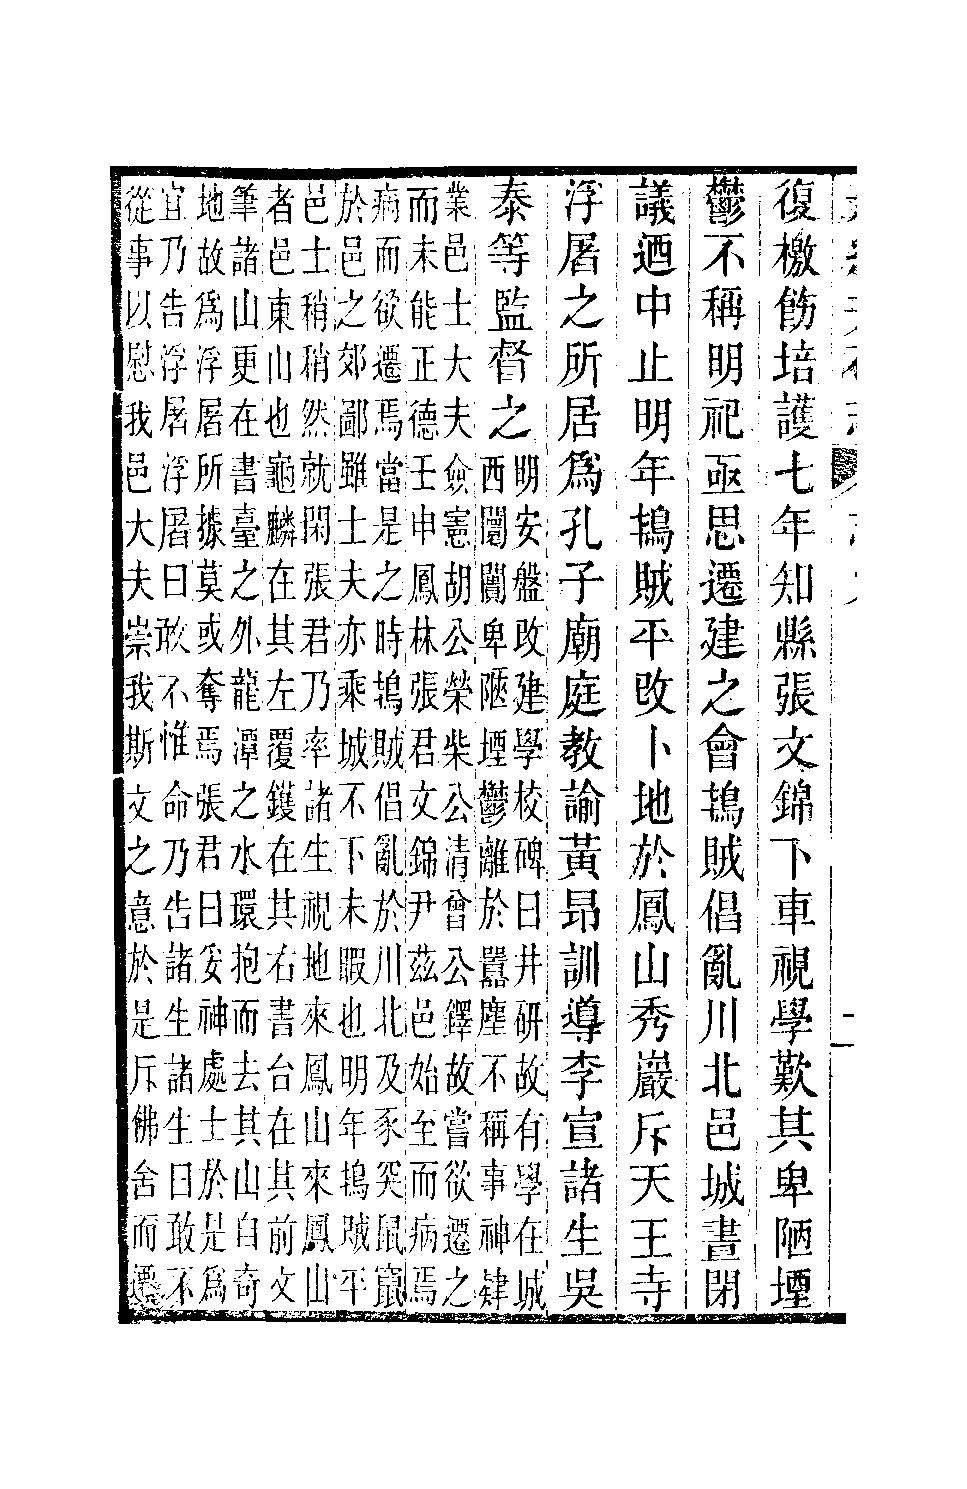 復檄飭培護七年知縣張文錦下車視學歎其卑陋堙
鬱不稱明祀亟思遷建之會鴇賊倡亂川北邑城晝閉
議迺中止明年鴇賊平改卜地於鳳山秀巖斥天王寺
浮屠之所居爲孔子廟庭教諭黃昂訓導李宣諸生吳
泰等監督之
明安盤改建學校碑曰井研故有學在城
西闤闠卑陋堙鬱離於囂塵不稱事神肄
業邑士大夫僉憲胡公榮柴公清曾公鐸故嘗欲遷之
而未能正德壬申鳳林張君文錦尹茲邑始至而病焉
病而欲遷焉當是之時鴇賊倡亂於川北及豕突鼠竄
於邑之郊鄙雖士夫亦乘城不下未暇也明年鴇賊平
邑士稍稍然就閑張君乃率諸生視地來鳳山來鳳山
者邑東山也龜麟在其左覆鑊在其右書台在其前文
筆諸山更在書臺之外龍潭之水環抱而去其山自奇
地故爲浮屠所據莫或奪焉張君曰妥神處士於是爲
宜乃告浮屠浮屠曰敢不惟命乃告諸生諸生曰敢不
從事以慰我邑大夫崇我斯文之意於是斥佛舍而遷